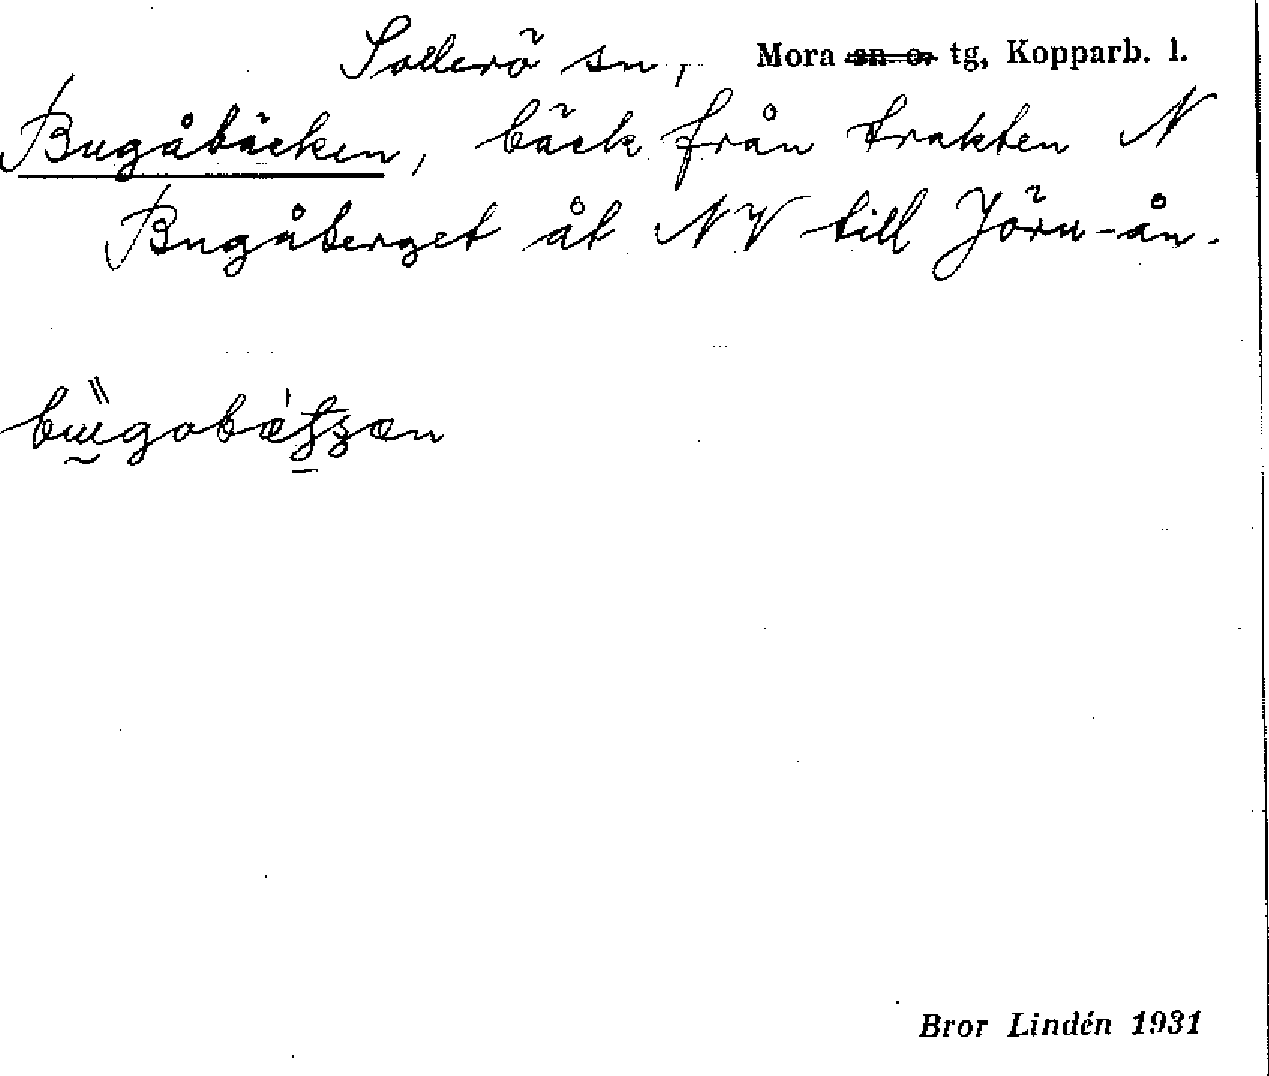 Sollerö sn, Mora sn o. tg, Kopparb. l.
Bugåbäcken, bäck från trakten N
Bugåberget åt NV till Jöru-ån.
Bror Lindén 1931